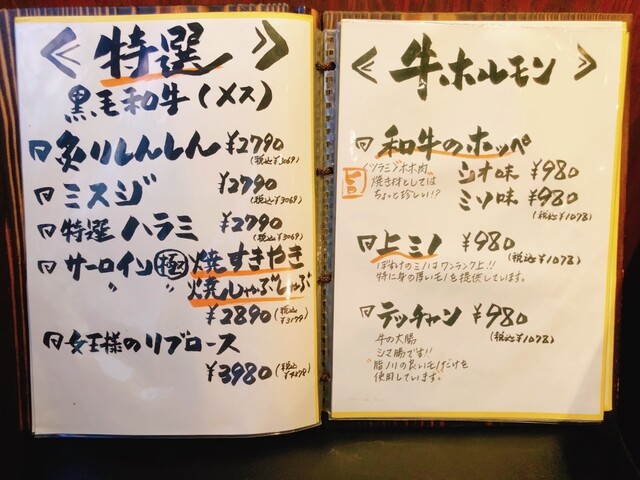 ≪ 特選 ≫
黒毛和牛(メス)
炙りしんしん ¥2790
(税込¥3069)
ミスジ ¥2790
(税込¥3069)
特選ハラミ ¥2790
(税込¥3069)
サーロイン極焼すきやき
〃 〃 焼しゃぶしゃぶ
¥2890(税込¥3179)
女王様のリブロース
¥3980(税込¥4378)
< 牛ホルモン >
和牛のホッペ
ツラミ シオ味 ¥980
焼き材としては ミソ味 ¥980
ちょっと珍しい!?
(税込¥1078)
上ミノ ¥980
(税込¥1078)
のミノはワンランク上!!
特に身の厚いモノを提供しています。
テッチャン ¥980
(税込¥1078)
牛の大腸
シマ腸です!!
脂ノリの良いモノだけを
使用しています。